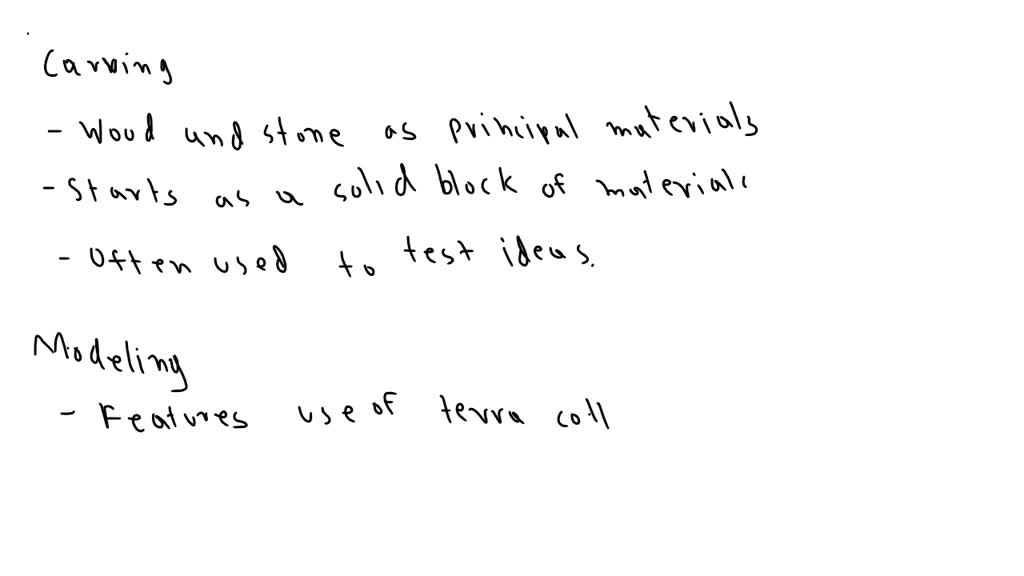 Carving
- Wood and stone as principal materials
- Starts as a solid block of material
- Often used to test ideas.
Modeling
- Features use of terra cott